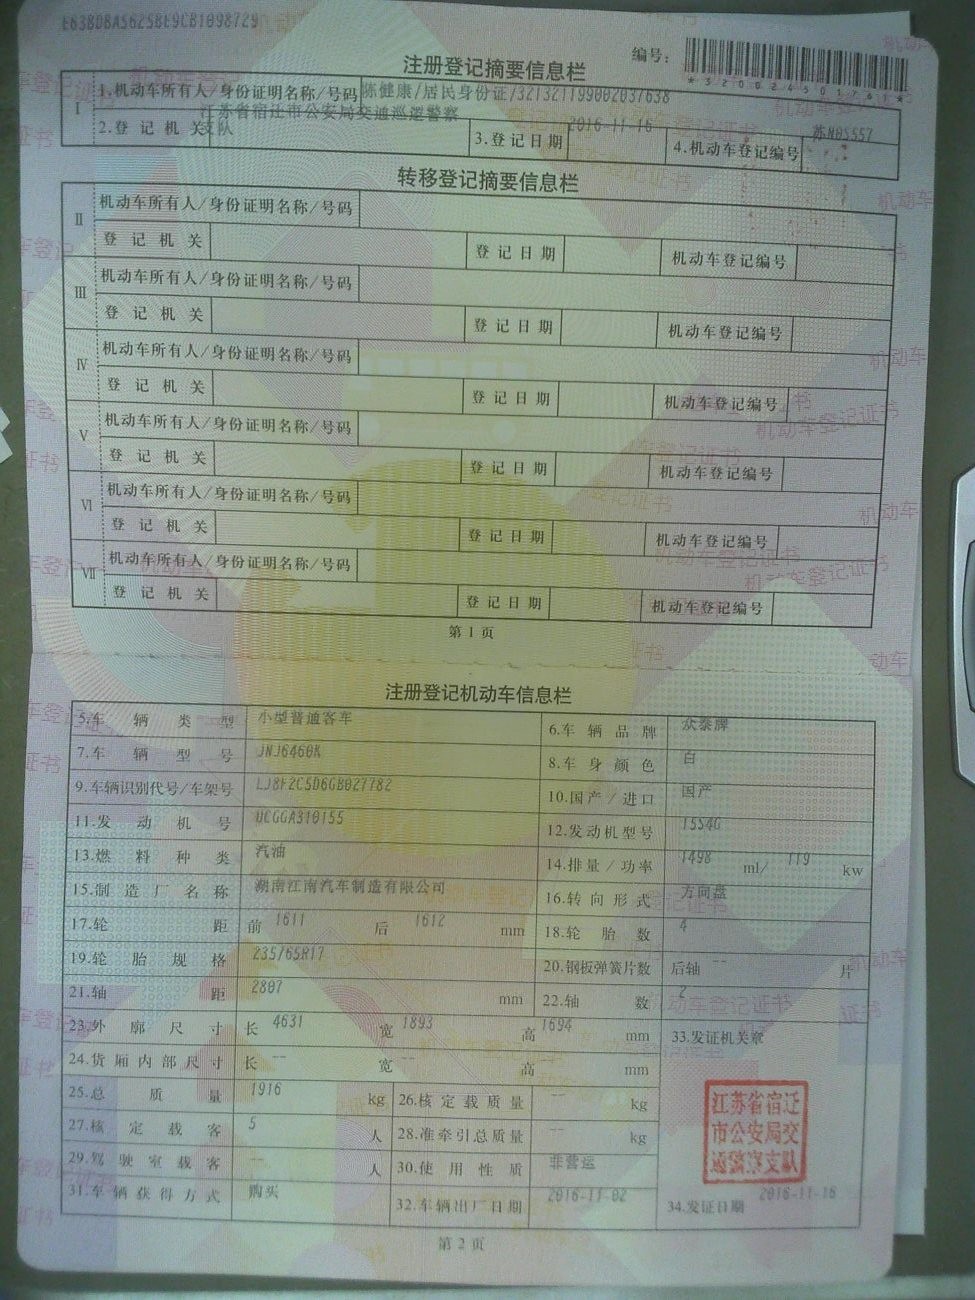 E63BDBA5625BE9CB1098729
编号：
*320024501761*
注册登记摘要信息栏
I 1.机动车所有人/身份证明名称/号码 陈健康/居民身份证/321321199002037638
2.登记机关 江苏省宿迁市公安局交通巡逻警察支队 3.登记日期 2016-11-16 4.机动车登记编号 苏N05557
转移登记摘要信息栏
II 机动车所有人/身份证明名称/号码
登记机关 登记日期 机动车登记编号
III 机动车所有人/身份证明名称/号码
登记机关 登记日期 机动车登记编号
IV 机动车所有人/身份证明名称/号码
登记机关 登记日期 机动车登记编号
V 机动车所有人/身份证明名称/号码
登记机关 登记日期 机动车登记编号
VI 机动车所有人/身份证明名称/号码
登记机关 登记日期 机动车登记编号
VII 机动车所有人/身份证明名称/号码
登记机关 登记日期 机动车登记编号
第1页
注册登记机动车信息栏
5.车辆类型 小型普通客车 6.车辆品牌 众泰牌
7.车辆型号 JNJ6460K 8.车身颜色 白
9.车辆识别代号/车架号 LJ8F2C5D6GB027782 10.国产/进口 国产
11.发动机号 UCGGA310155 12.发动机型号 TSS4G
13.燃料种类 汽油 14.排量/功率 1498 ml/ 119 kw
15.制造厂名称 湖南江南汽车制造有限公司 16.转向形式 方向盘
17.轮距 前 1611 后 1612 mm 18.轮胎数 4
19.轮胎规格 235/65R17 20.钢板弹簧片数 后轴 -- 片
21.轴距 2807 mm 22.轴数 2
23.外廓尺寸 长 4631 宽 1893 高 1694 mm 33.发证机关章
24.货厢内部尺寸 长 -- 宽 -- 高 -- mm
25.总质量 1916 kg 26.核定载质量 -- kg
27.核定载客 5 人 28.准牵引总质量 -- kg
29.驾驶室载客 -- 人 30.使用性质 非营运
31.车辆获得方式 购买 32.车辆出厂日期 2016-11-02 34.发证日期 2016-11-16
江苏省宿迁
市公安局交
巡警察支队
第2页